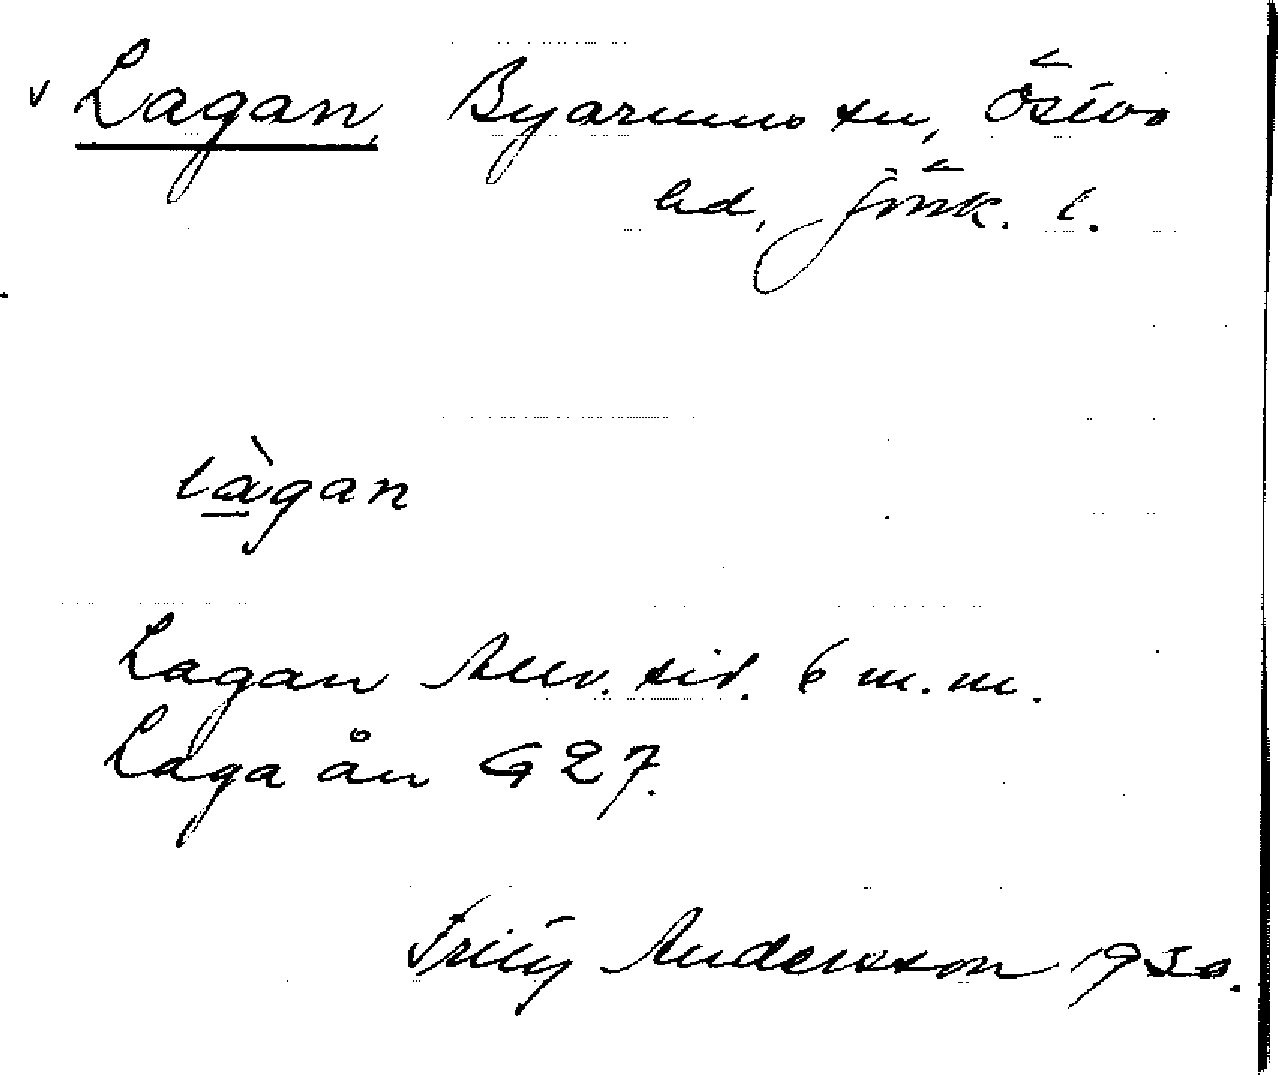 v Lagan, Byarums sn, Östbo
hd, Jönk. l.
làgan
Lagan Allv. sid. 6 m.m.
Laga ån G 27.
Fritz Andersson 1930.